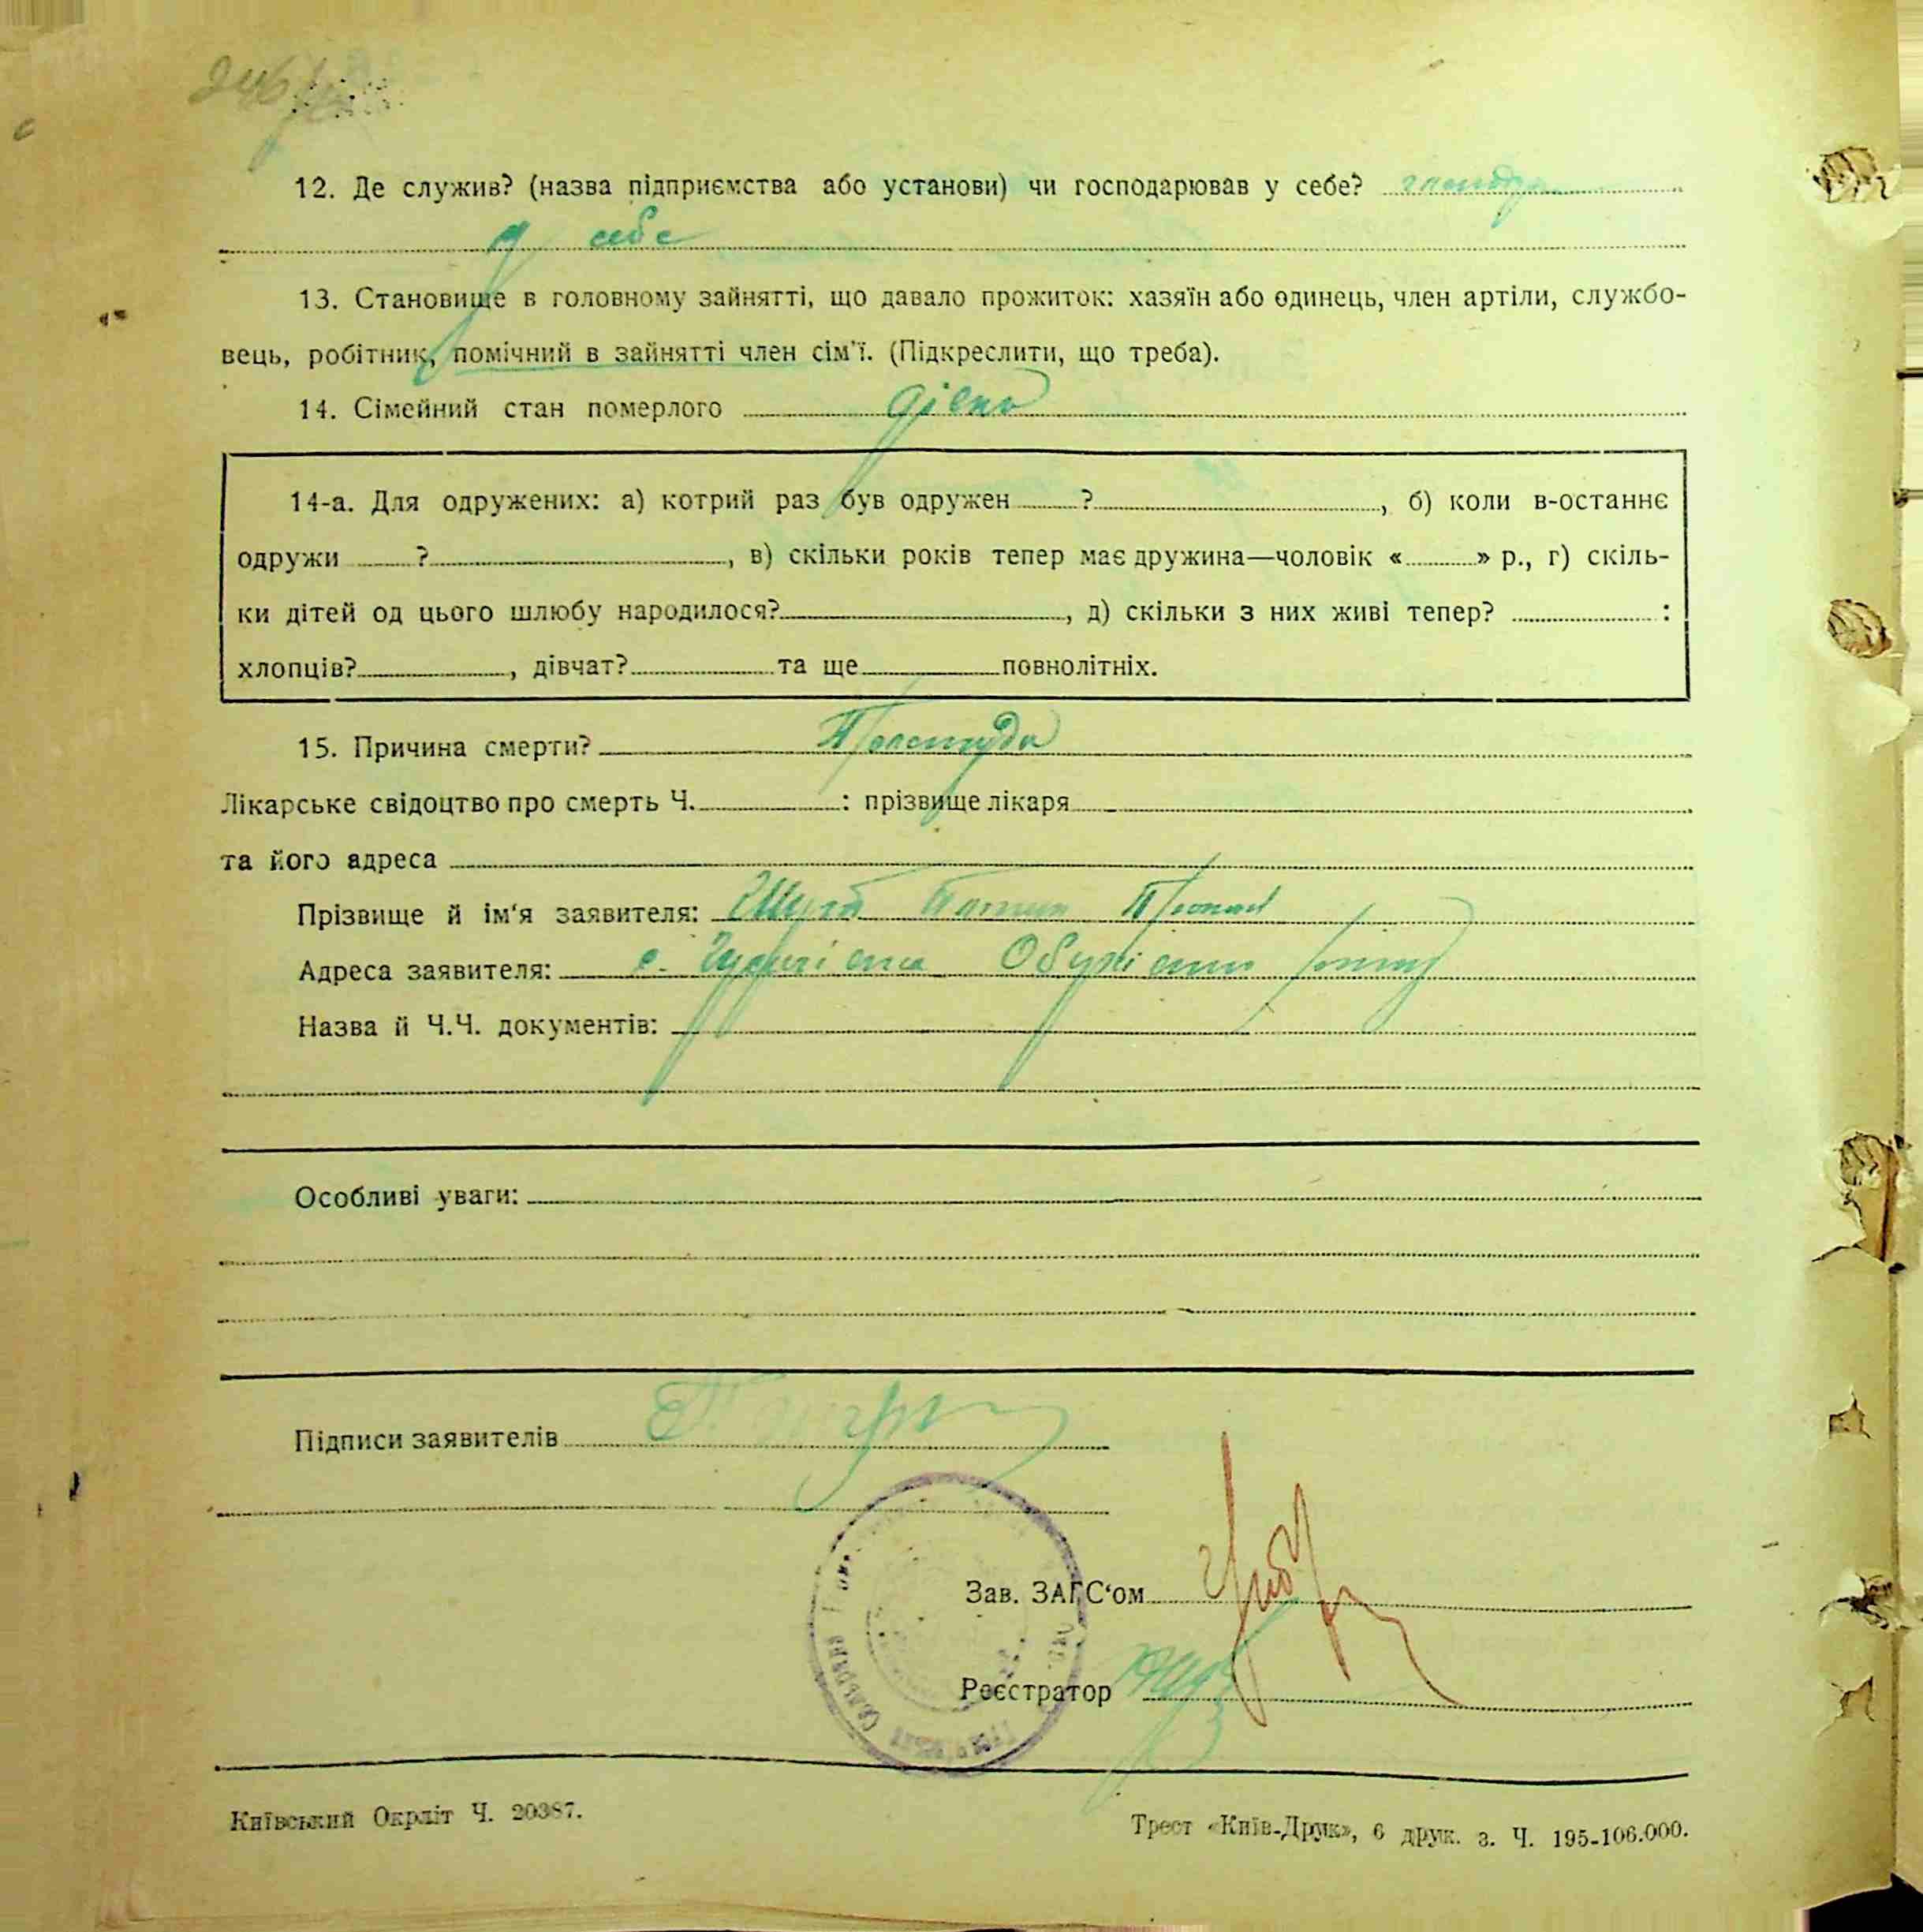 246
12. Де служив? (назва підприємства або установи) чи господарював у себе? господар
у себе
13. Становище в головному зайнятті, що давало прожиток: хазяїн або одинець, член артіли, службо-
вець, робітник, помічний в зайнятті член сім'ї. (Підкреслити, що треба).
14. Сімейний стан померлого дівка
14-а. Для одружених: а) котрий раз був одружен ? , б) коли в-останнє
одружи ? , в) скільки років тепер має дружина—чоловік « » р., г) скіль-
ки дітей од цього шлюбу народилося? , д) скільки з них живі тепер? :
хлопців? , дівчат? та ще повнолітніх.
15. Причина смерти? Простуда
Лікарське свідоцтво про смерть Ч. : прізвище лікаря
та його адреса
Прізвище й ім'я заявителя:
Адреса заявителя: с.
Назва й Ч.Ч. документів:
Особливі уваги:
Підписи заявителів
Зав. ЗАГС'ом
Реєстратор
Київський Окрліт Ч. 20387.
Трест «Київ-Друк», 6 друк. з. Ч. 195-106.000.